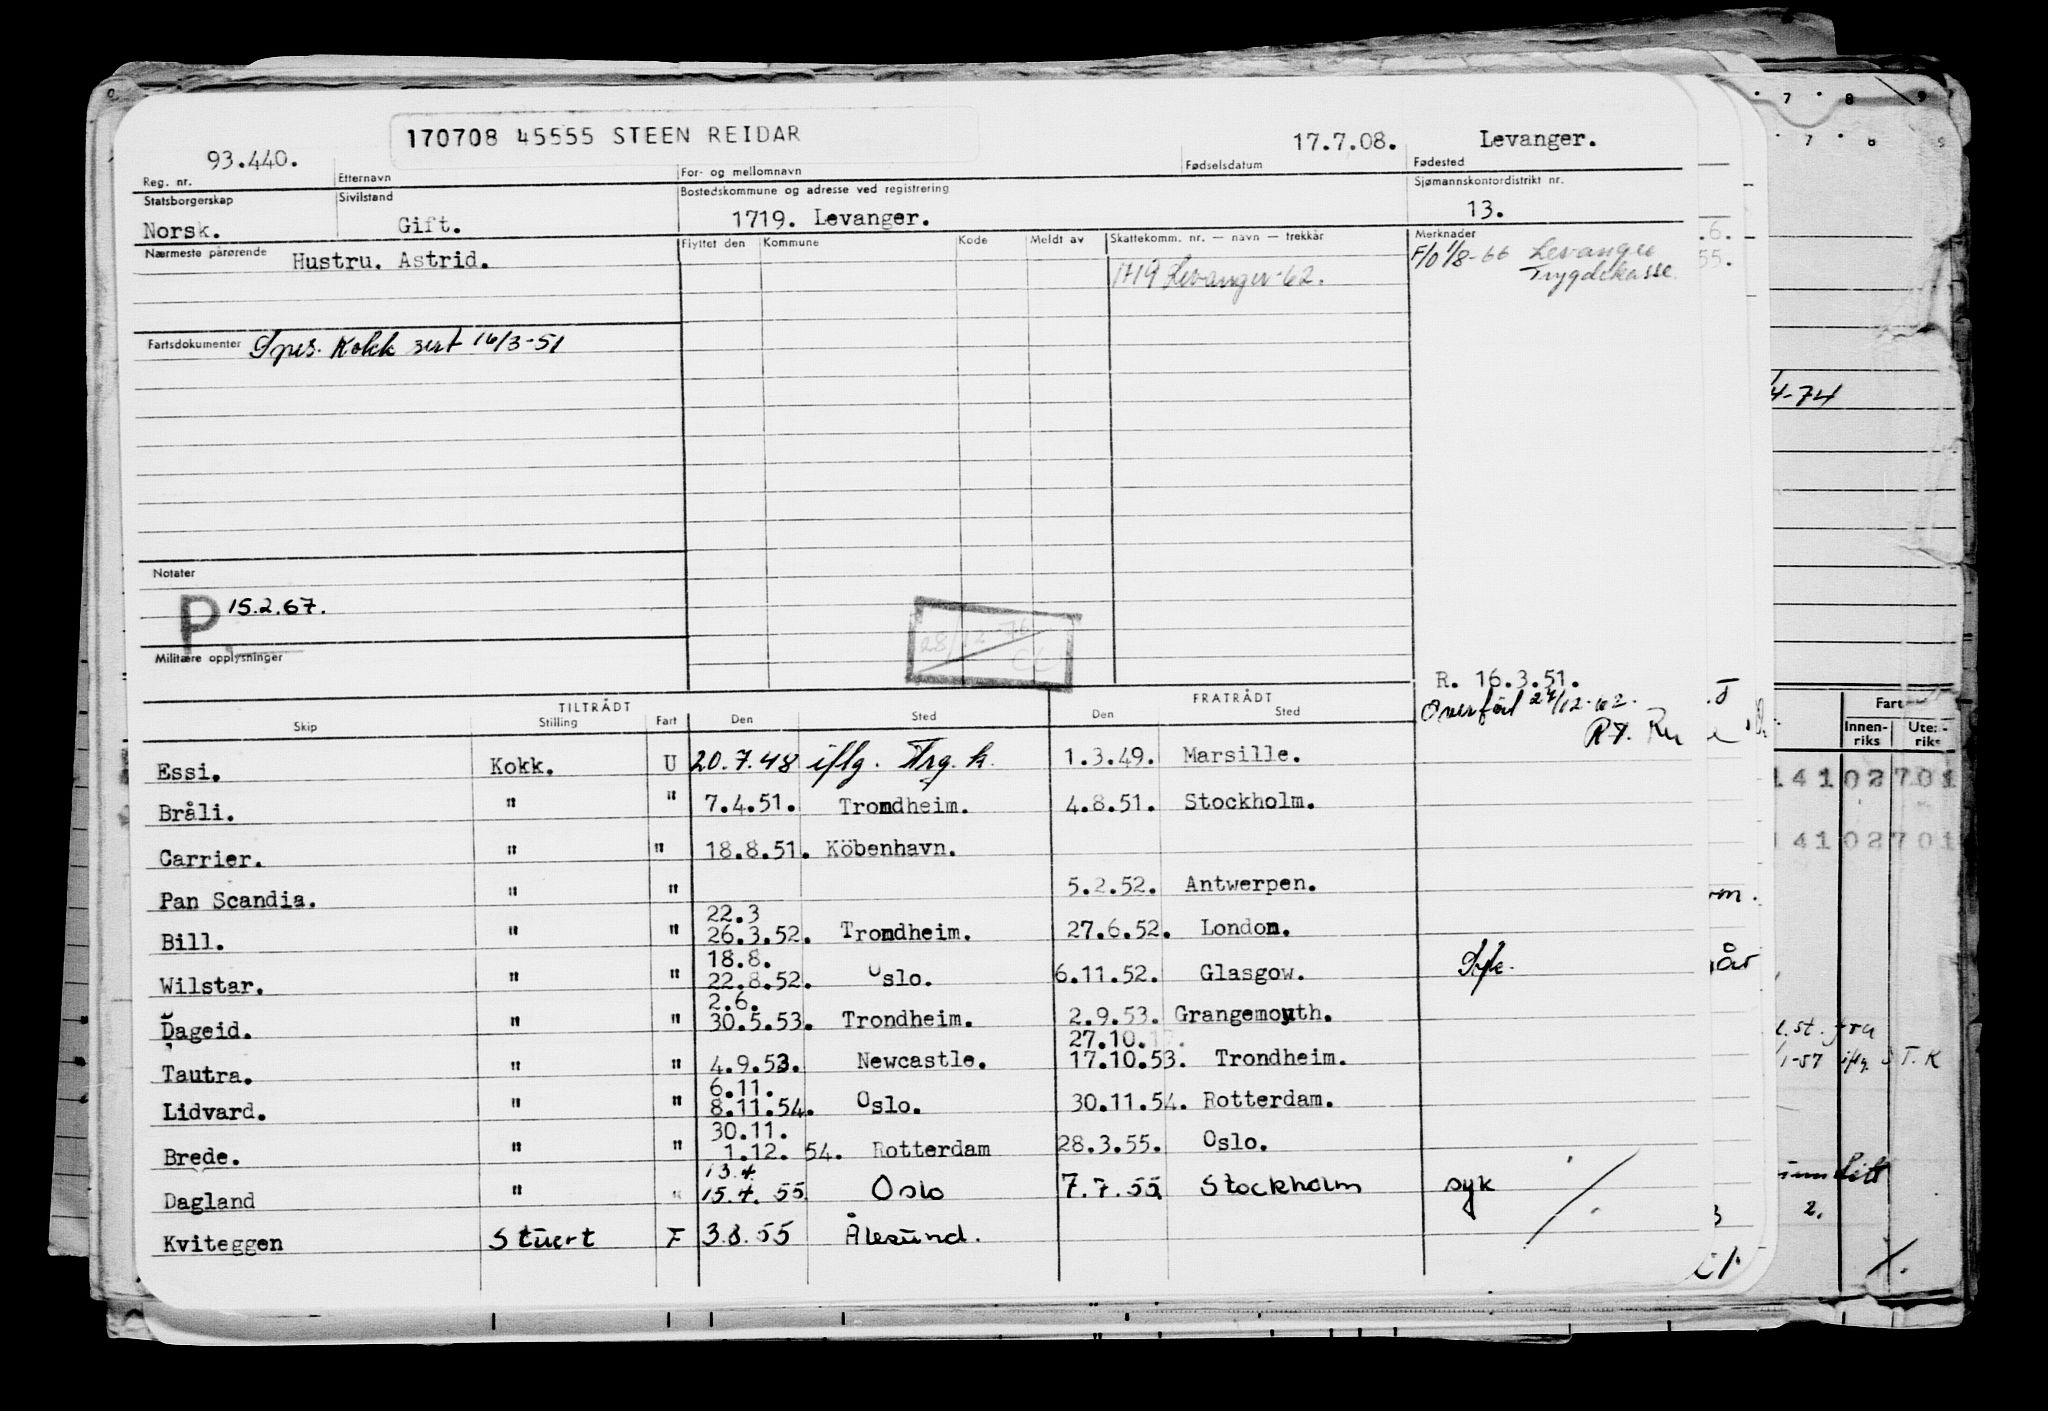 170708 45555 STEEN REIDAR
93.440. 17.7.08. Levanger.
Reg. nr. Etternavn For- og mellomnavn Fødselsdatum Fødested
Statsborgerskap Sivilstand Bostedskommune og adresse ved registrering Sjømannskontordistrikt nr.
Norsk. Gift. 1719. Levanger. 13.
Nærmeste pårørende Hustru. Astrid. Flyttet den Kommune Kode Meldt av Skattekomm. nr. — navn — trekkår Merknader
1719 Levanger-62. F/0 1/8-66 Levanger
Trygdekasse.
Fartsdokumenter Spes. Kokk sert 16/3-51
Notater
P 15.2.67.
28/12-76
CL
Militære opplysninger
R. 16.3.51.
Overført 27/12-62.
TILTRÅDT FRATRÅDT
Skip Stilling Fart Den Sted Den Sted
Essi. Kokk. U 20.7.48 iflg. Trg. k. 1.3.49. Marsille.
Bråli. " " 7.4.51. Trondheim. 4.8.51. Stockholm.
Carrier. " " 18.8.51. Köbenhavn.
Pan Scandia. " " 5.2.52. Antwerpen.
22.3
Bill. " " 26.3.52. Trondheim. 27.6.52. London.
18.8.
Wilstar. " " 22.8.52. Oslo. 6.11.52. Glasgow. Syk.
2.6.
Dageid. " " 30.5.53. Trondheim. 2.9.53. Grangemouth.
27.10.
Tautra. " " 4.9.53. Newcastle. 17.10.53. Trondheim.
6.11.
Lidvard. " " 8.11.54. Oslo. 30.11.54. Rotterdam.
30.11.
Brede. " " 1.12. 54. Rotterdam 28.3.55. Oslo.
13.4
Dagland " " 15.4. 55 Oslo 7.7.55 Stockholm syk
Kviteggen Stuert F 3.8.55 Ålesund.
7 8 9
7 8 9
.6.
55.
4-74
Fart
Innen-
riks
Ute-
riks
14102701
14102701
om.
l.st. fra
1-57 iflg. S T.K
2.